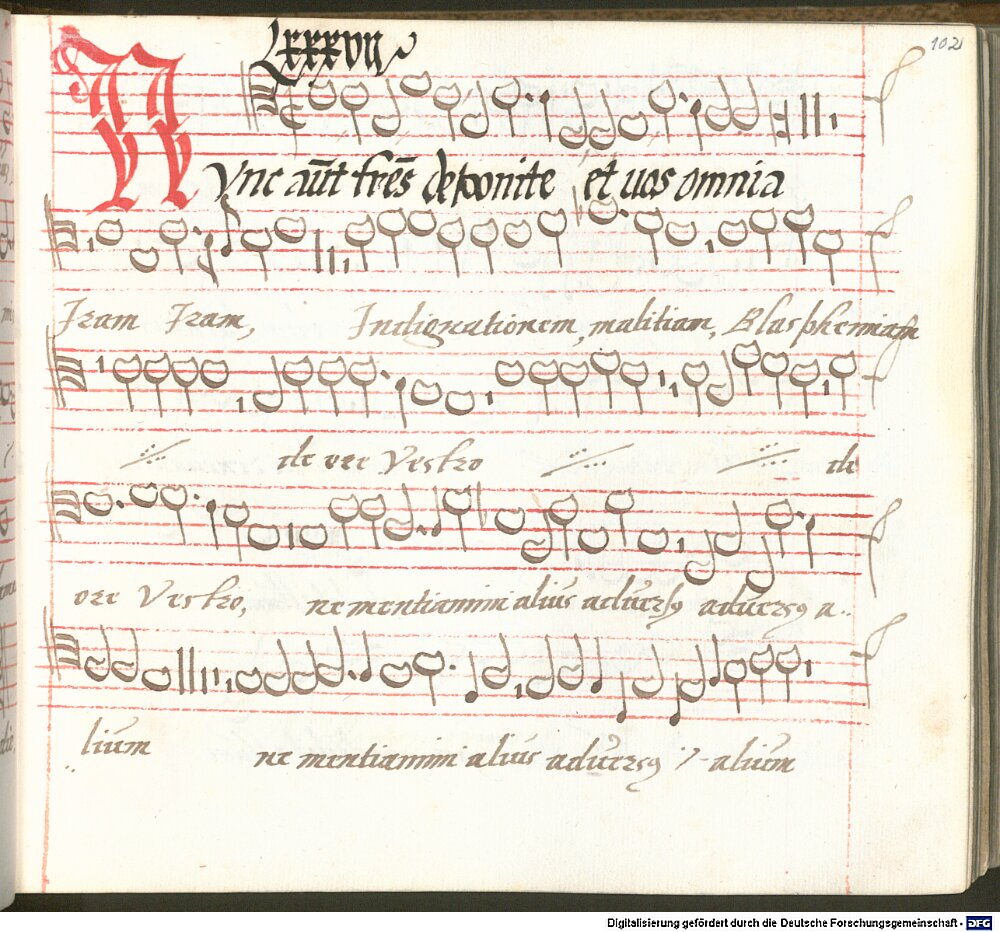 102
Lxxxvii
Nunc aūt frēs deponite et uos omnia
Iram Iram, Indignationem, malitiam, Blasphemiam
de ore Vestro de
ore Vestro, ne mentiamini aliūs adūersꝯ adūersꝯ a..
liūm ne mentiamini aliūs adūersꝯ ij aliūm
Digitalisierung gefördert durch die Deutsche Forschungsgemeinschaft - DFG